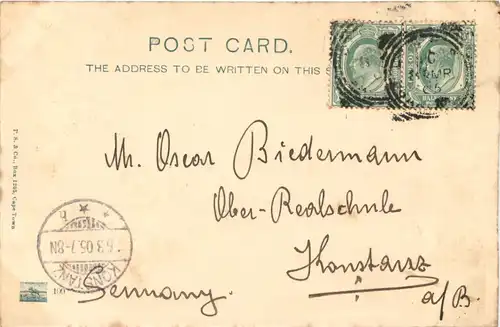 POST CARD.
THE ADDRESS TO BE WRITTEN ON THIS S
HALFPENNY
C
MR
05
M. Oscar Biedermann
Ober-Realschule
Konstanz
a/B.
Germany.
KONSTANZ
6.3.05.7-8N
T. S. & Co., Box 1292, Cape Town